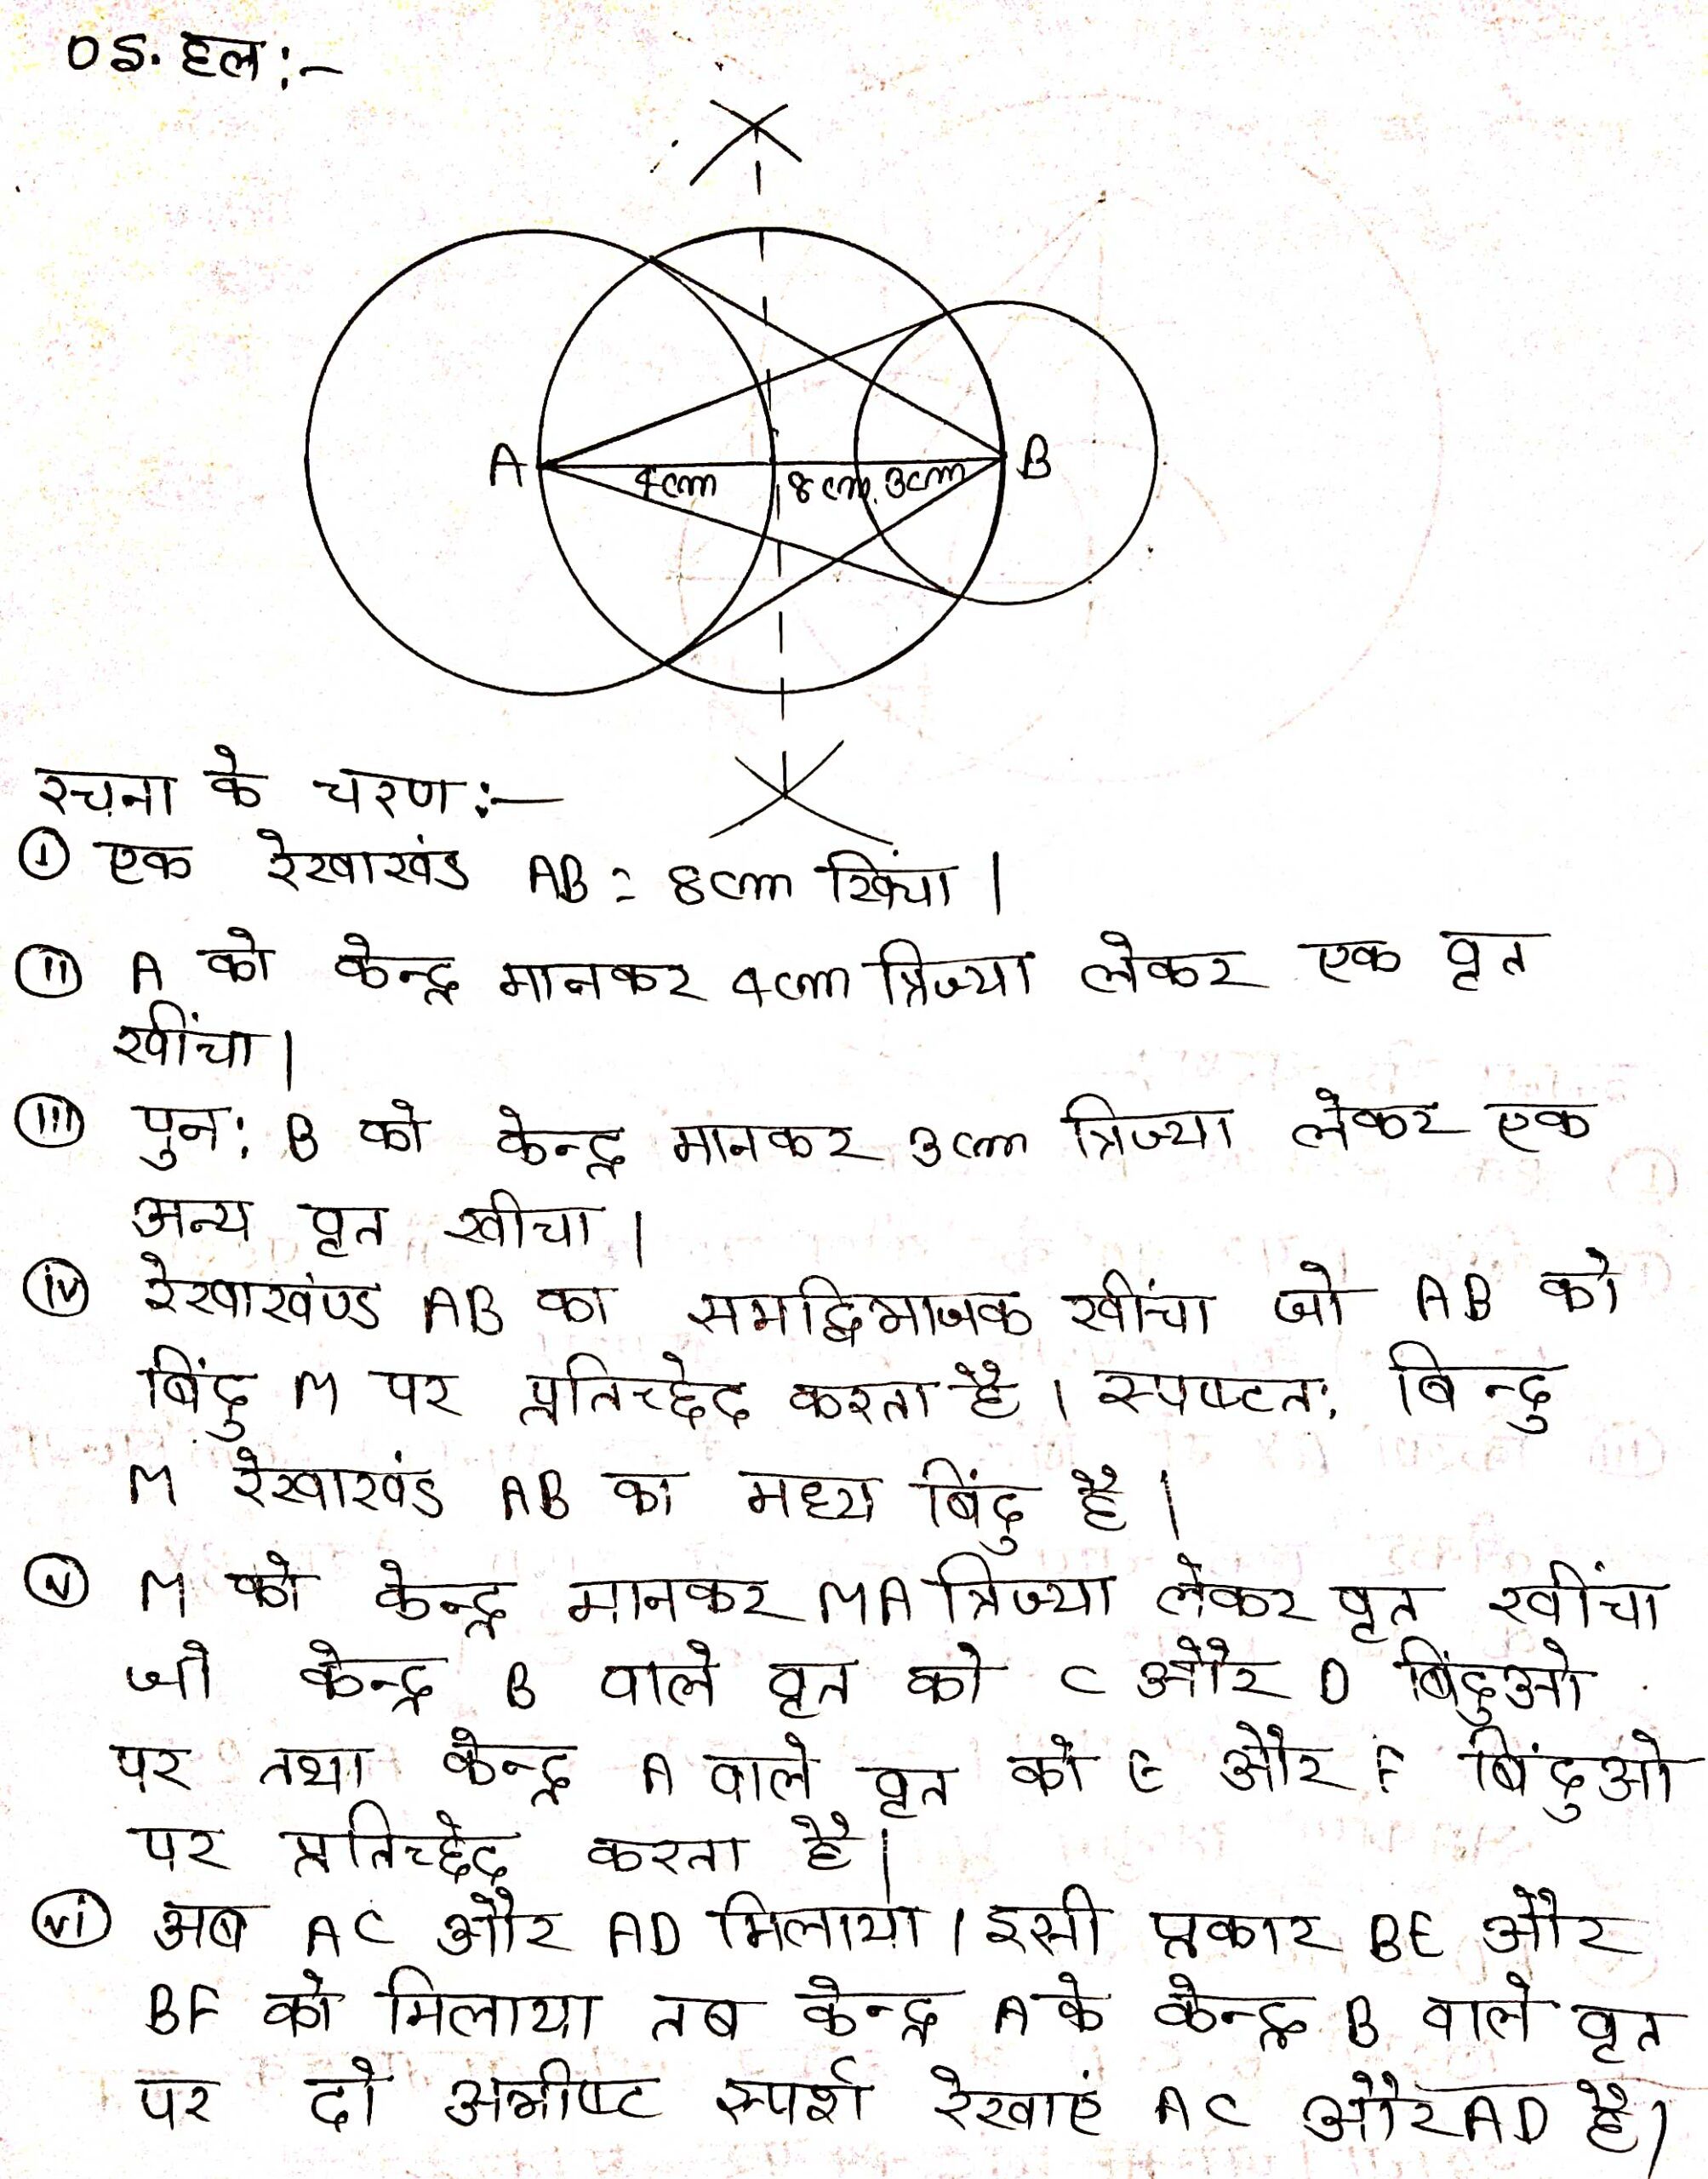 05. हल :-
A 4cm 8cm. 3cm B
रचना के चरण :-
(i) एक रेखाखंड AB = 8cm खिंचा |
(ii) A को केन्द्र मानकर 4cm त्रिज्या लेकर एक वृत
खींचा |
(iii) पुन: B को केन्द्र मानकर 3cm त्रिज्या लेकर एक
अन्य वृत खीचा |
(iv) रेखाखंण्ड AB का समद्विभाजक खींचा जो AB को
बिंदु M पर प्रतिच्छेद करता है । स्पष्टत: बिन्दु
M रेखाखंड AB का मध्य बिंदु है |
(v) M को केन्द्र मानकर MA त्रिज्या लेकर वृत खींचा
जो केन्द्र B वाले वृत को C और D बिंदुओ
पर तथा केन्द्र A वाले वृत को E और F बिंदुओ
पर प्रतिच्छेद करता है |
(vi) अब AC और AD मिलाया । इसी प्रकार BE और
BF को मिलाया तब केन्द्र A के केन्द्र B वाले वृत
पर दो अभीष्ट स्पर्श रेखाएं AC और AD है |